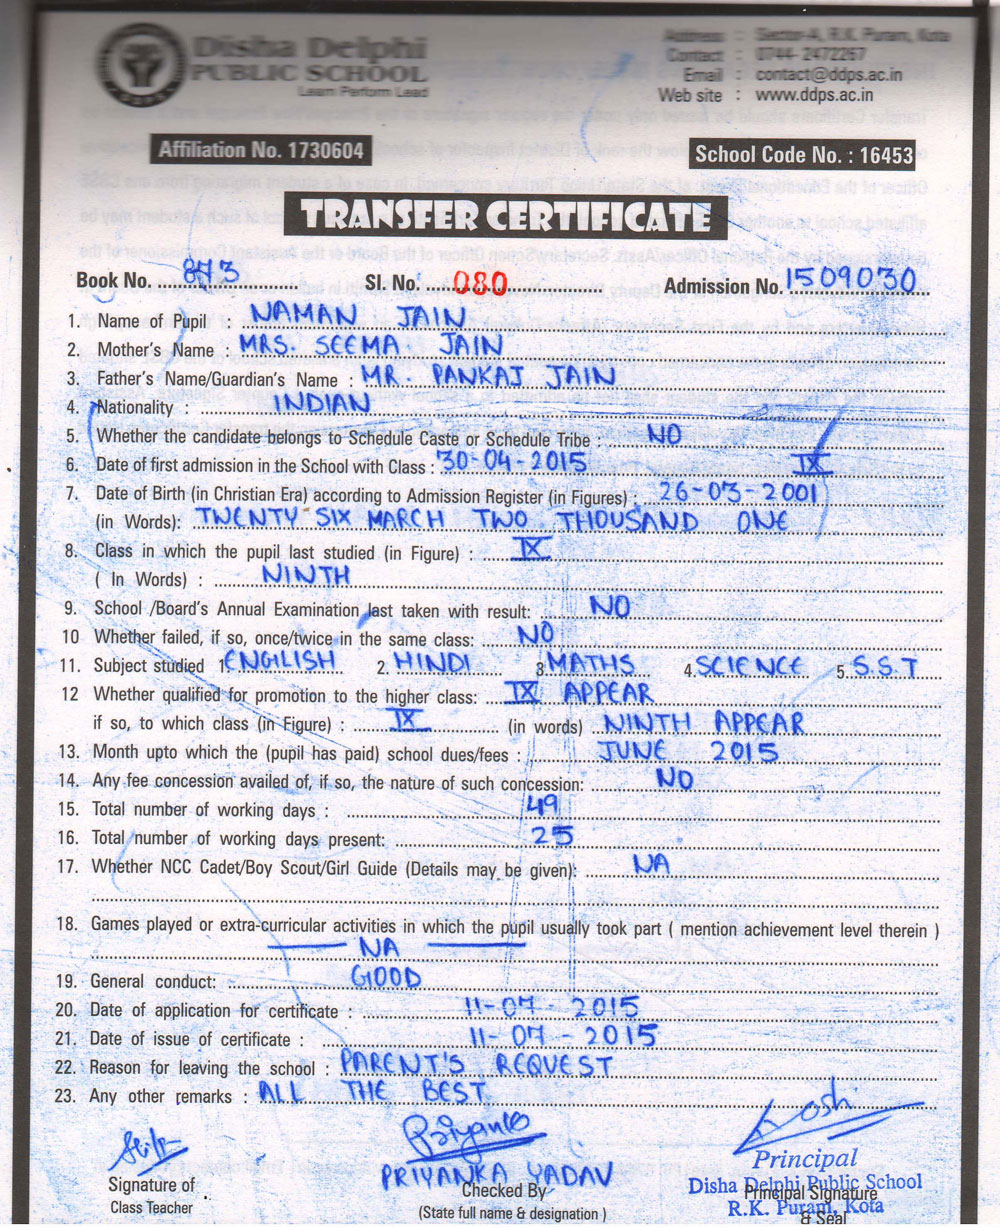 Disha Delphi
PUBLIC SCHOOL
Learn Perform Lead
Address : Sector-A, R.K. Puram, Kota
Contact : 0744- 2472267
Email : contact@ddps.ac.in
Web site : www.ddps.ac.in
Affiliation No. 1730604
School Code No. : 16453
TRANSFER CERTIFICATE
Book No. 873 Sl. No. 080 Admission No. 1509030
1. Name of Pupil : NAMAN JAIN
2. Mother's Name : MRS. SEEMA JAIN
3. Father's Name/Guardian's Name : MR. PANKAJ JAIN
4. Nationality : INDIAN
5. Whether the candidate belongs to Schedule Caste or Schedule Tribe : NO
6. Date of first admission in the School with Class : 30-04-2015 IX
7. Date of Birth (in Christian Era) according to Admission Register (in Figures) : 26-03-2001
(in Words): TWENTY SIX MARCH TWO THOUSAND ONE
8. Class in which the pupil last studied (in Figure) : IX
( In Words) : NINTH
9. School /Board's Annual Examination last taken with result: NO
10 Whether failed, if so, once/twice in the same class: NO
11. Subject studied 1. ENGLISH 2. HINDI 3. MATHS 4. SCIENCE 5. S.S.T
12 Whether qualified for promotion to the higher class: IX APPEAR
if so, to which class (in Figure) : IX (in words) NINTH APPEAR
13. Month upto which the (pupil has paid) school dues/fees : JUNE 2015
14. Any fee concession availed of, if so, the nature of such concession: NO
15. Total number of working days : 49
16. Total number of working days present: 25
17. Whether NCC Cadet/Boy Scout/Girl Guide (Details may be given): NA
18. Games played or extra-curricular activities in which the pupil usually took part ( mention achievement level therein )
NA
19. General conduct: GOOD
20. Date of application for certificate : 11-07-2015
21. Date of issue of certificate : 11-07-2015
22. Reason for leaving the school : PARENT'S REQUEST
23. Any other remarks : ALL THE BEST
Priyanka
PRIYANKA YADAV
Principal
Disha Delphi Public School
R.K. Puram, Kota
Signature of
Class Teacher
Checked By
(State full name & designation )
Principal Signature
& Seal